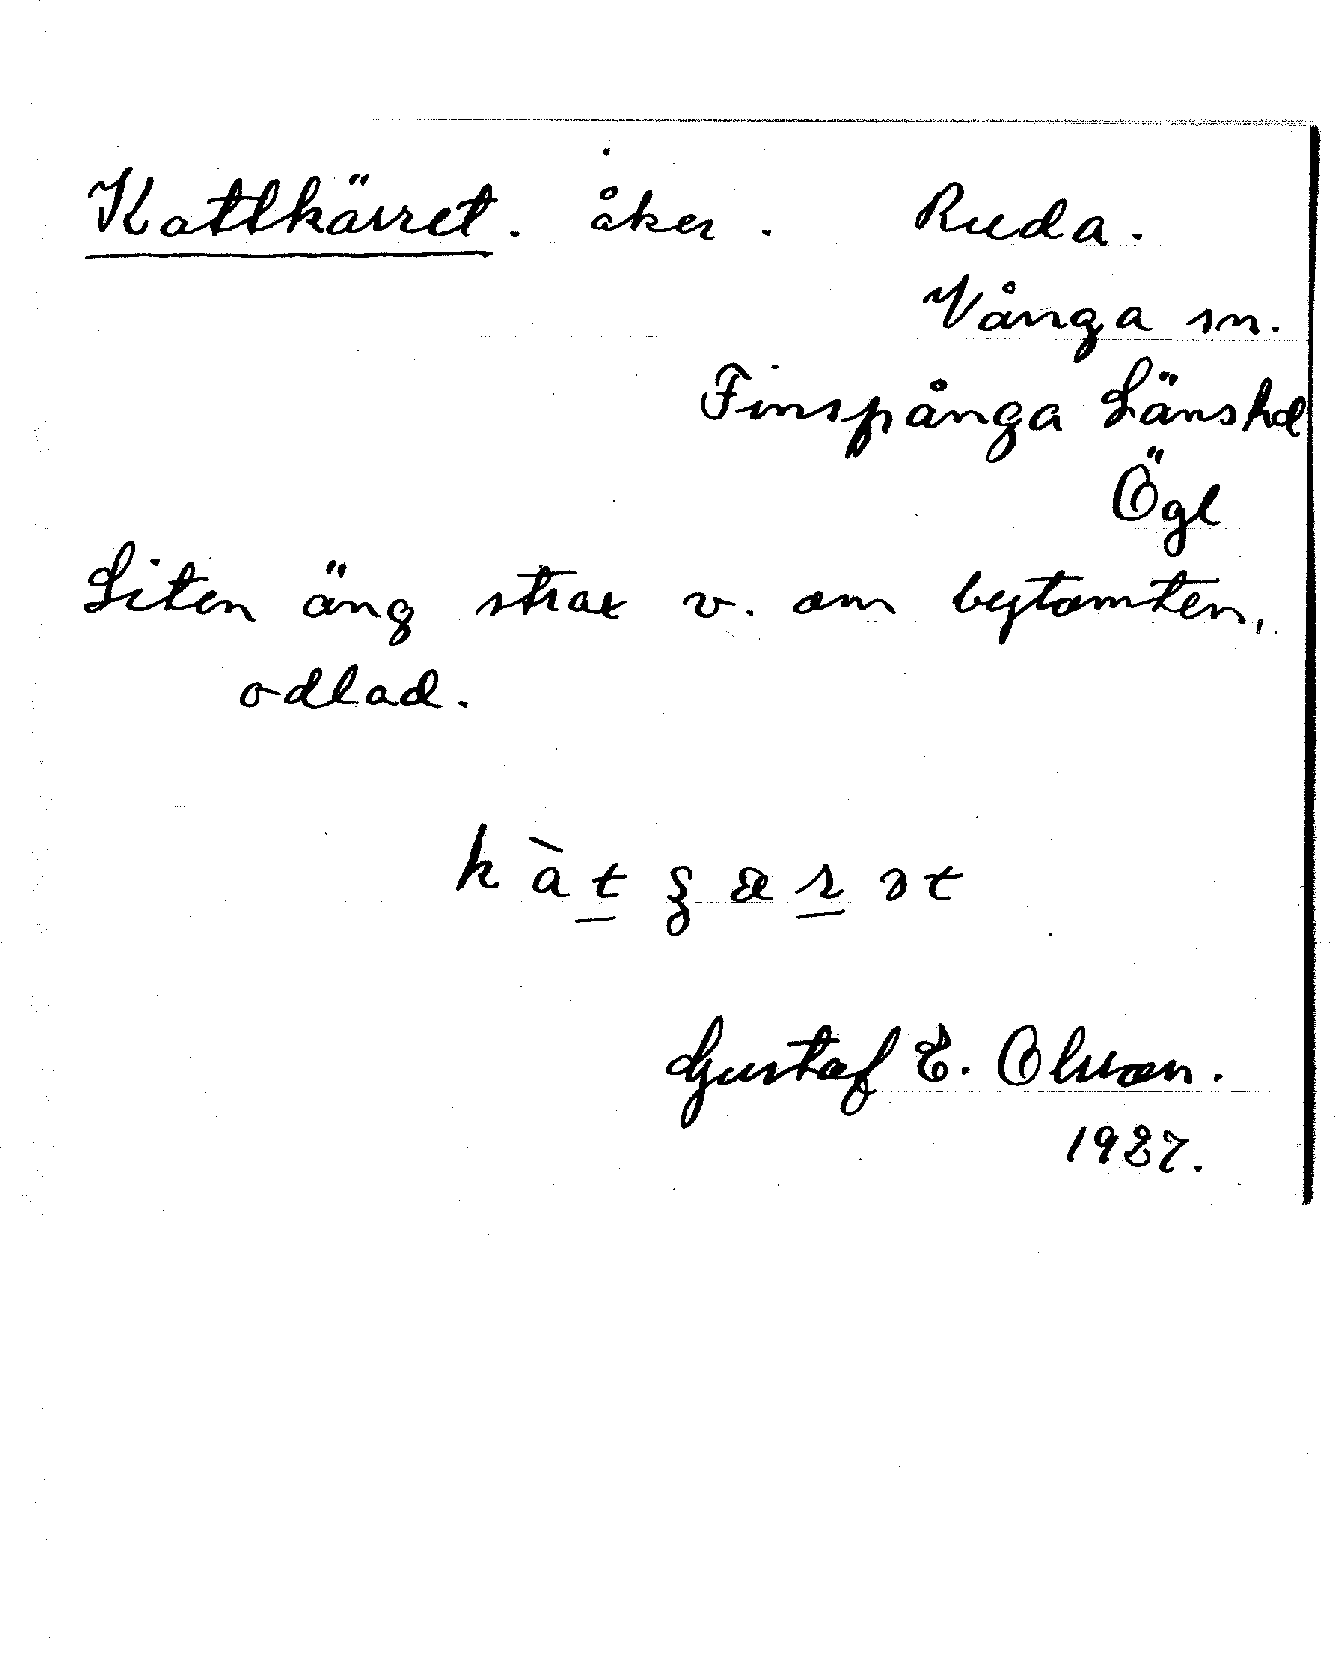 Kattkärret. åker. Ruda.
Vånga sn.
Finspånga Länshd
Ögl
Liten äng strax v. om bytomten,
odlad.
kàt̲ ʂær̲ət
Gustaf E. Olsson.
1927.